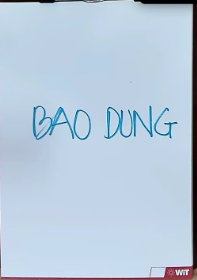 BAO DUNG
WIT